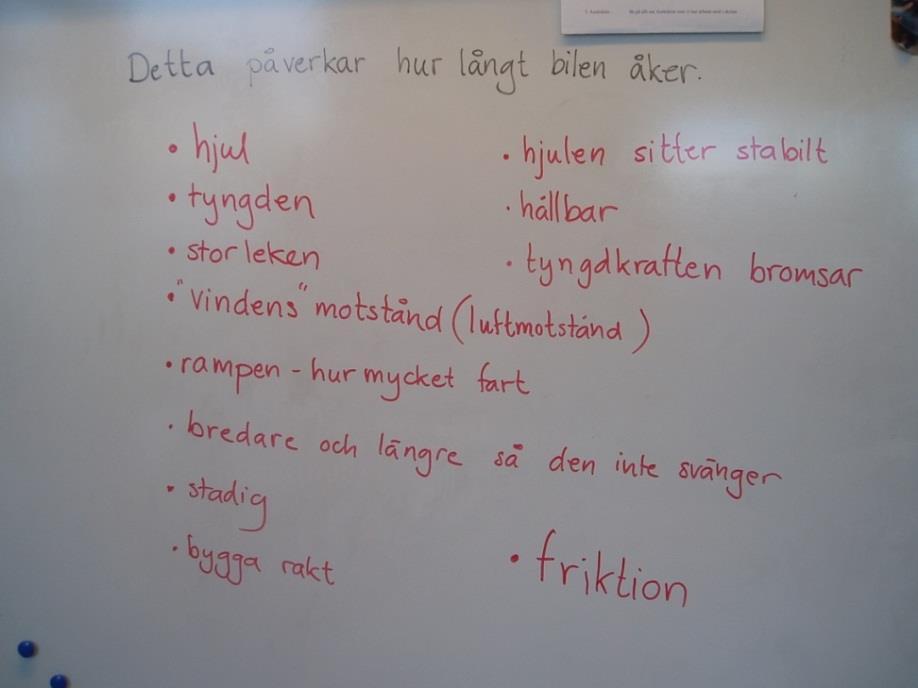 Detta påverkar hur långt bilen åker.
• hjul
• tyngden
• storleken
• "vindens" motstånd (luftmotstånd)
• rampen - hur mycket fart
• bredare och längre så den inte svänger
• stadig
• bygga rakt
• hjulen sitter stabilt
• hållbar
• tyngdkraften bromsar
• friktion